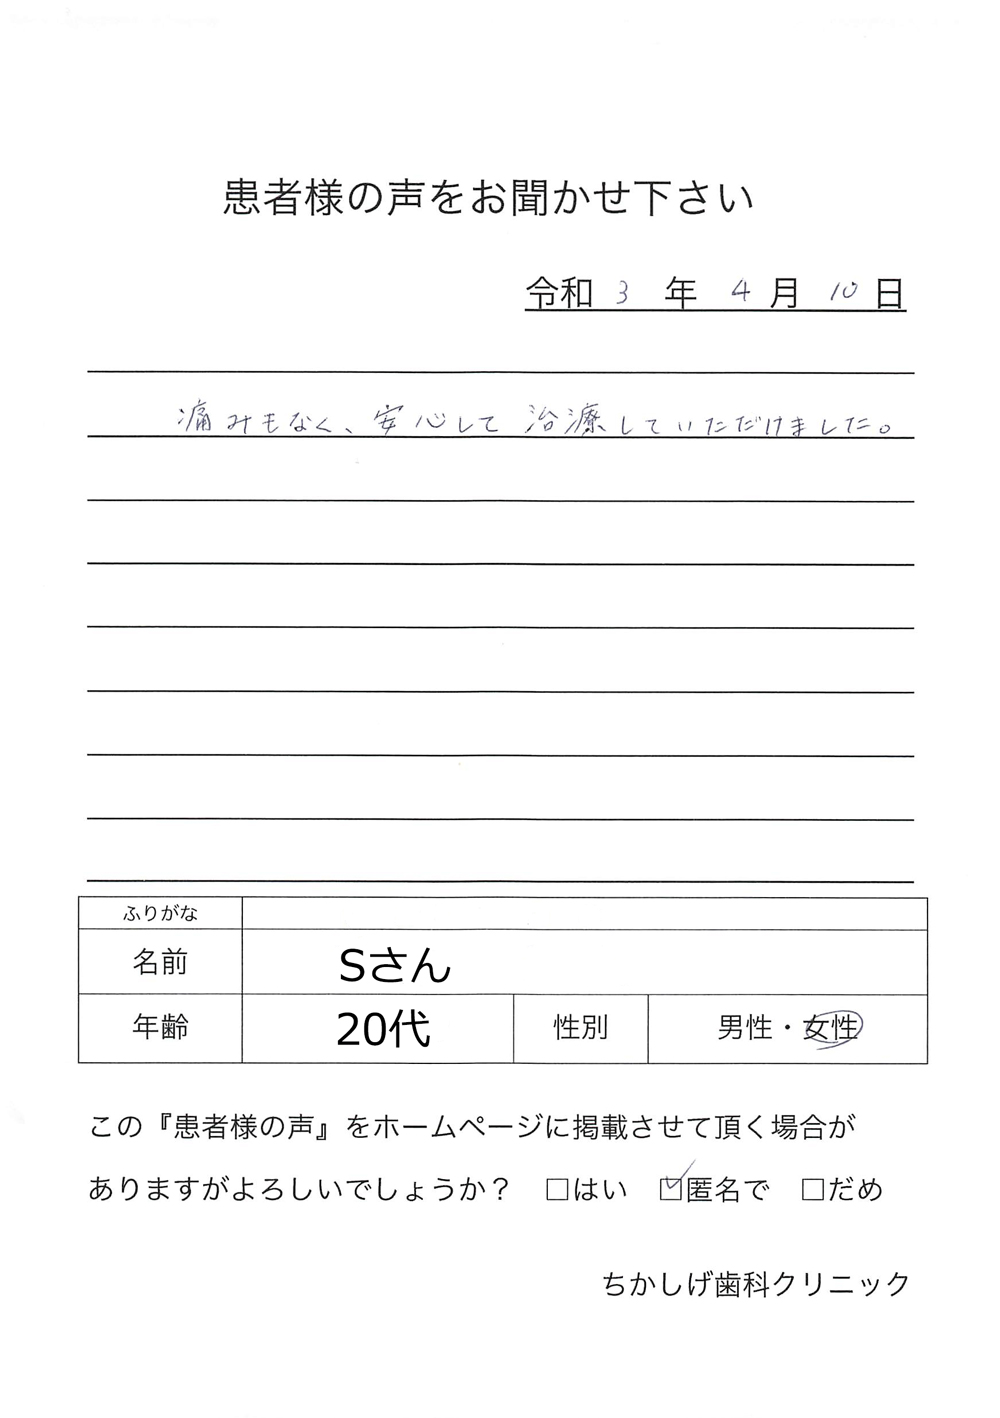 患者様の声をお聞かせ下さい
令和 3 年 4 月 10 日
痛みもなく、安心して治療していただけました。
ふりがな
名前 Sさん
年齢 20代 性別 男性・女性
この『患者様の声』をホームページに掲載させて頂く場合が
ありますがよろしいでしょうか？ □はい ☑匿名で □だめ
ちかしげ歯科クリニック